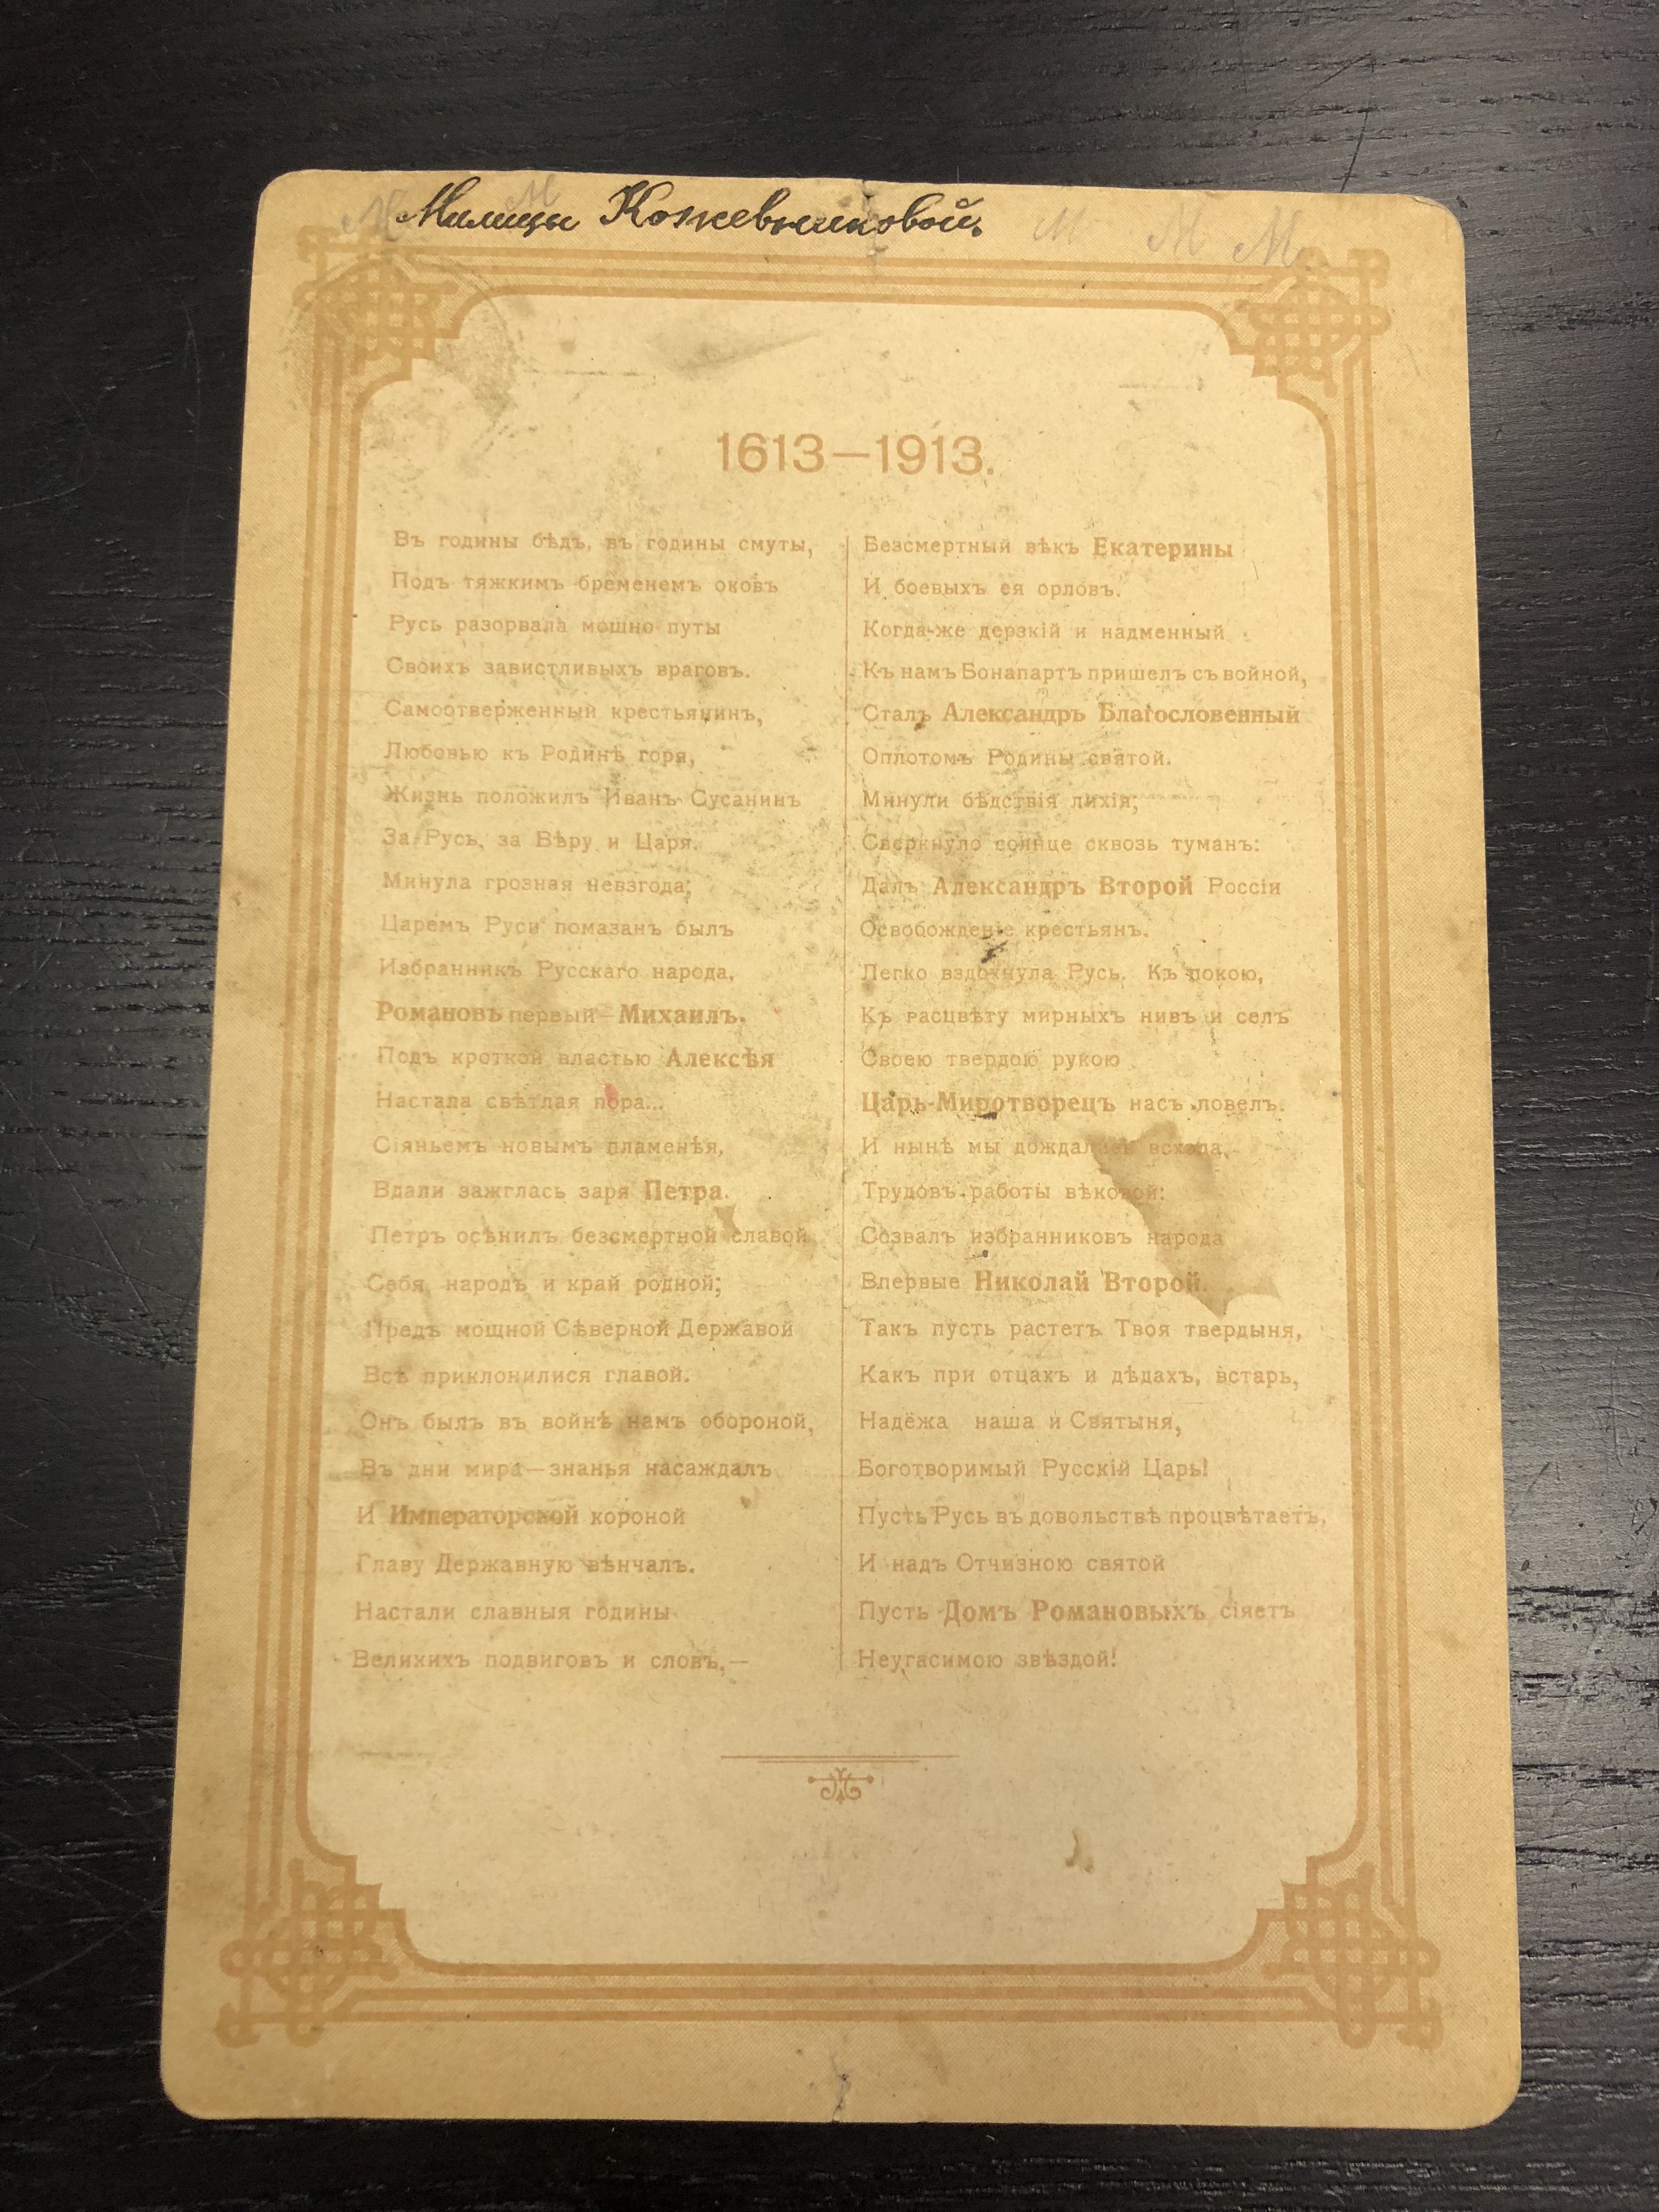 М М
Милицы Кожевниковой.
М М М
1613—1913.
Въ годины бѣдъ, въ годины смуты,
Подъ тяжкимъ бременемъ оковъ
Русь разорвала мощно путы
Своихъ завистливыхъ враговъ.
Самоотверженный крестьянинъ,
Любовью къ Родинѣ горя,
Жизнь положилъ Иванъ Сусанинъ
За Русь, за Вѣру и Царя.
Минула грозная невзгода;
Царемъ Руси помазанъ былъ
Избранникъ Русскаго народа,
Романовъ первый—Михаилъ.
Подъ кроткой властью Алексѣя
Настала свѣтлая пора...
Сіяньемъ новымъ пламенѣя,
Вдали зажглась заря Петра.
Петръ осѣнилъ безсмертной славой
Себя, народъ и край родной;
Предъ мощной Сѣверной Державой
Всѣ приклонилися главой.
Онъ былъ въ войнѣ намъ обороной,
Въ дни мира—знанья насаждалъ
И Императорской короной
Главу Державную вѣнчалъ.
Настали славныя годины
Великихъ подвиговъ и словъ,—
Безсмертный вѣкъ Екатерины
И боевыхъ ея орловъ.
Когда-же дерзкій и надменный
Къ намъ Бонапартъ пришелъ съ войной,
Сталъ Александръ Благословенный
Оплотомъ Родины святой.
Минули бѣдствія лихія;
Сверкнуло солнце сквозь туманъ:
Далъ Александръ Второй Россіи
Освобожденіе крестьянъ.
Легко вздохнула Русь. Къ покою,
Къ расцвѣту мирныхъ нивъ и селъ
Своею твердою рукою
Царь-Миротворецъ насъ повелъ.
И нынѣ мы дождались всхода
Трудовъ работы вѣковой:
Созвалъ избранниковъ народа
Впервые Николай Второй.
Такъ пусть растетъ Твоя твердыня,
Какъ при отцахъ и дѣдахъ, встарь,
Надёжа наша и Святыня,
Боготворимый Русскій Царь!
Пусть Русь въ довольствѣ процвѣтаетъ,
И надъ Отчизною святой
Пусть Домъ Романовыхъ сіяетъ
Неугасимою звѣздой!